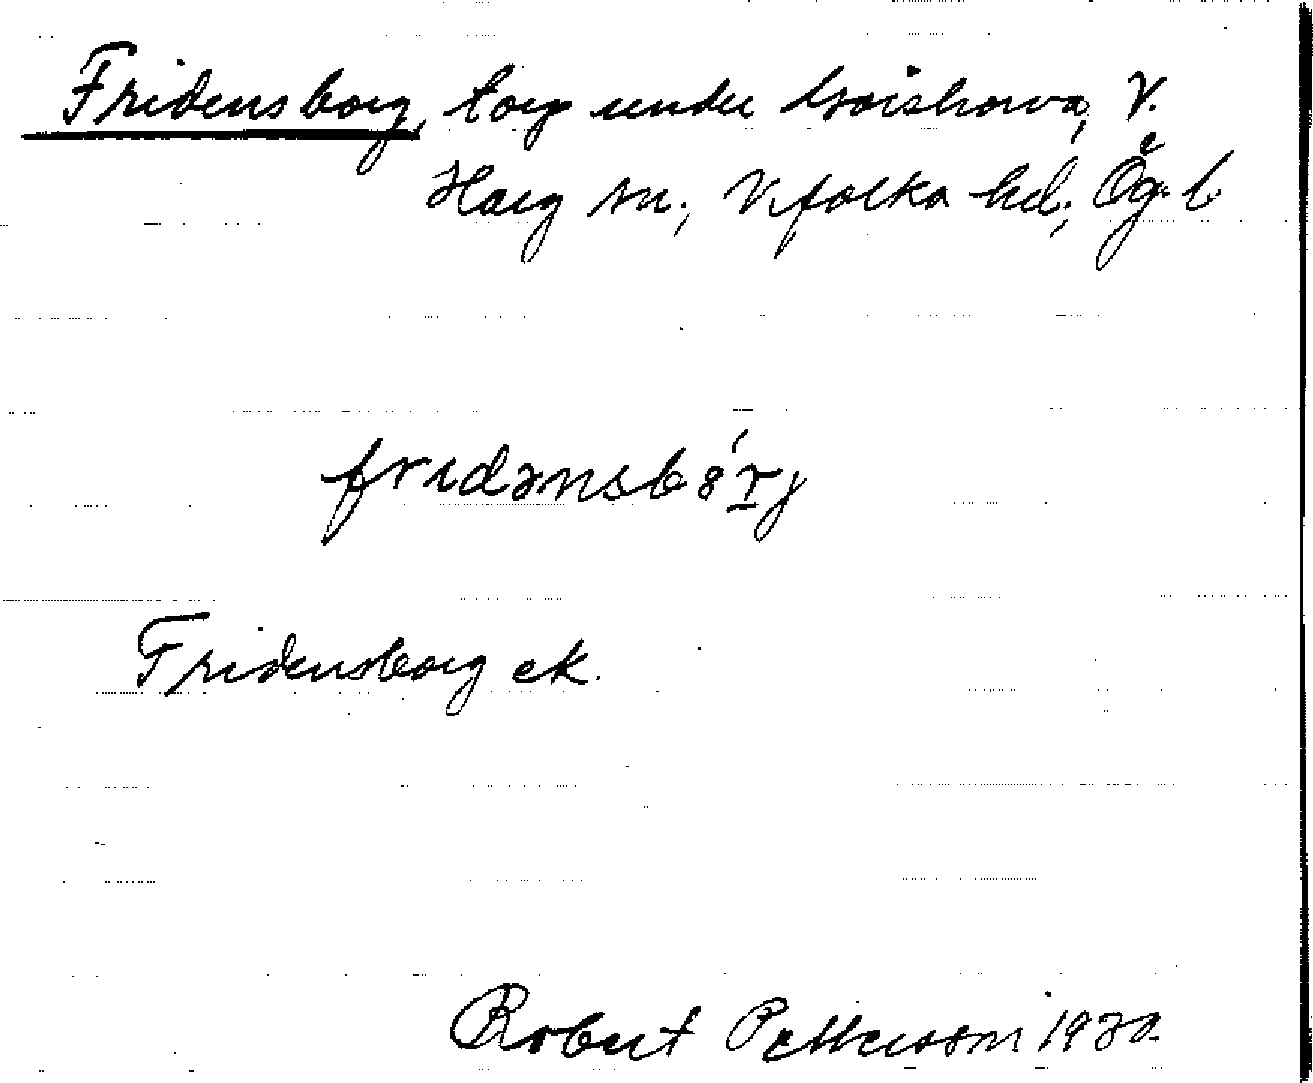 Fridensborg, torp under Broishorva, V.
Harg sn; Vifolka hd; Ög. l.
fridənsbórj
Fridensborg ek.
Robert Pettersson 1930